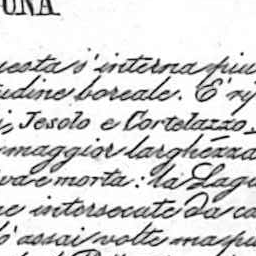 UNA
uesta s'interna piu
udine boreale. E'
Jesolo e Cortelazzo
maggior larghezza
va e morta: la Lagu
e intersecate da ca
assai volte ma